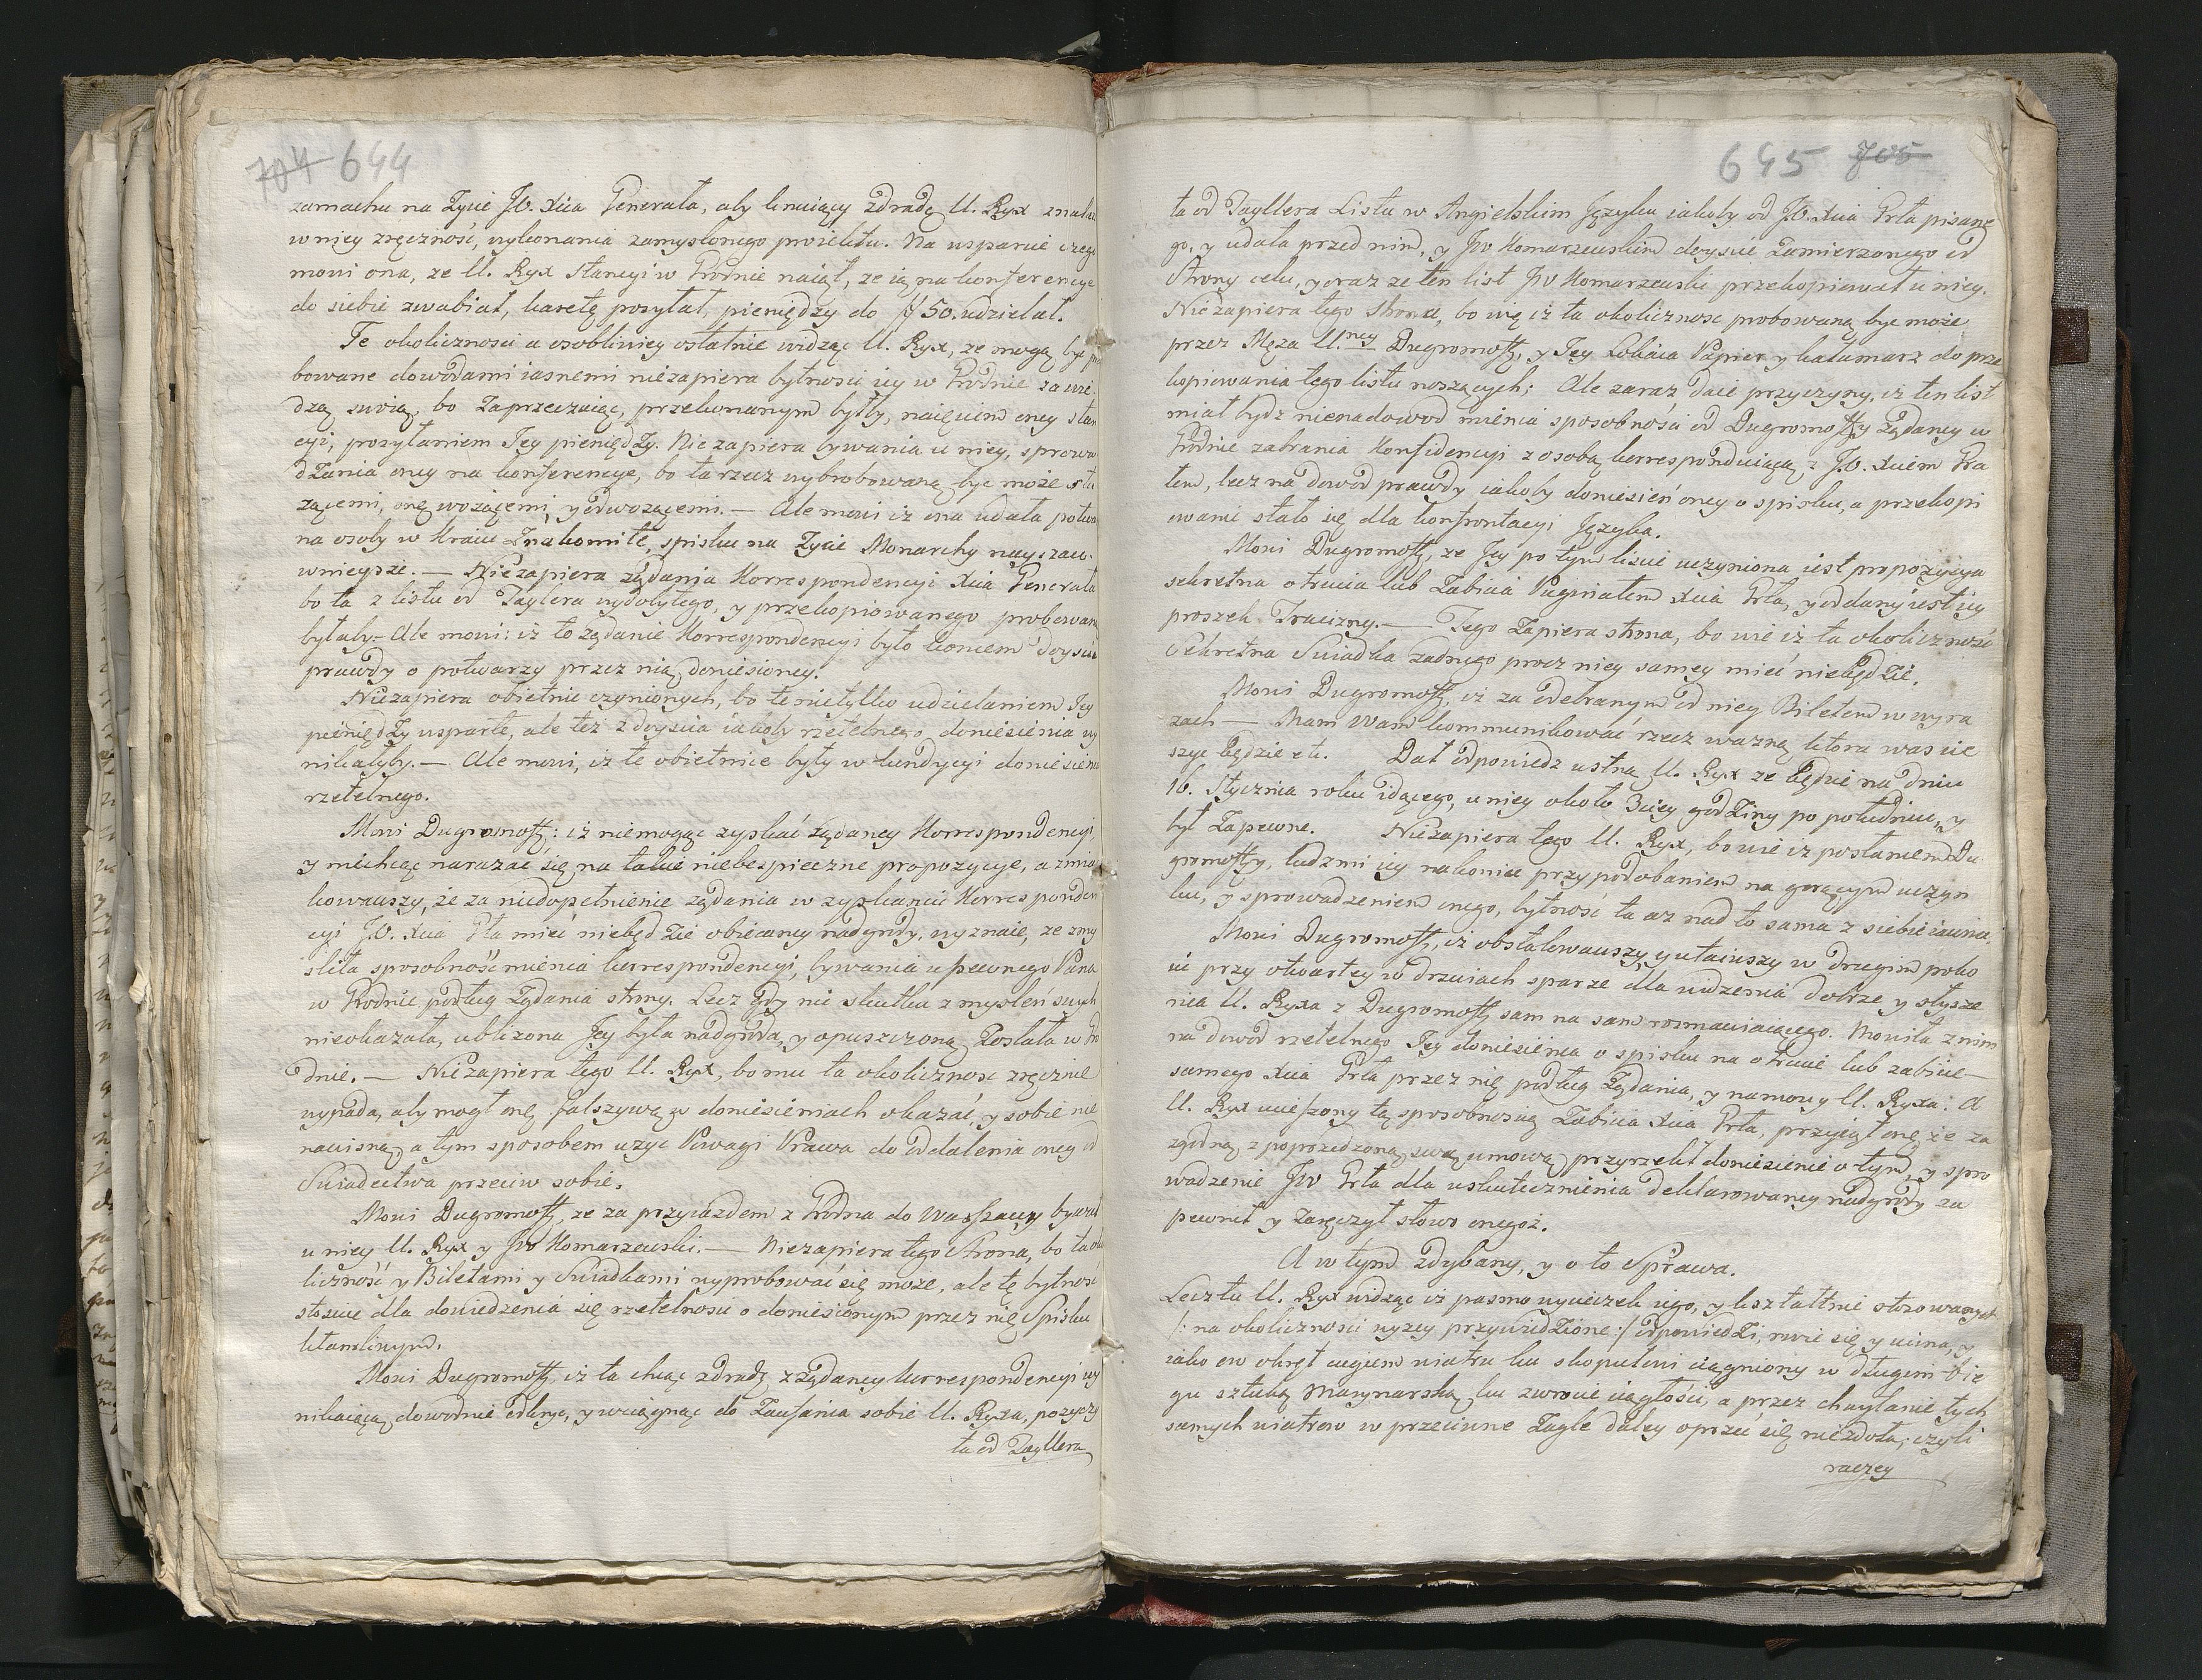 704 644
zamachu na Życie JO. Xcia Generała, aby knuiący zdradę U. Ryx znalazł
w niey zręczność, wykonania zamyslonego proiektu. Na wsparcie czego
mowi ona, ze U. Ryx Stancyi w Grodnie naiął, ze ią na konferencye
do siebie zwabiał, karetę posyłał, pieniędzy do # 50. udzielał.
Te okoliczności a osobliwiey ostatnie widząc U. Ryx, ze mogą być pro
bowane dowodami iasnemi niezapiera bytności iey w Grodnie za wie,
dzą swoią, bo Zaprzeczaiąc, przekonanym byłby, naięciem oney stan
cyi, posyłaniem Jey pieniędzy. Nie zapiera bywania u niey, sprowa
dzania oney na konferencye, bo ta rzecz wyprobowaną być może słu
zącemi, onę wożącemi, y odwożącemi. — Ale mowi iz ona udała potwarz
na osoby w Kraiu Znakomite, spisku na Zycie Monarchy nayszaco.
wnieysze. — Niezapiera żądania Korrespondencyi Xcia Generała
bo ta z listu od Taylera wydobytego, y przekopiowanego probowana
byłaby. Ale mowi: iż to żądanie Korrespondencyi było koncem doyścia
prawdy o potwarzy przez nią doniesioney.
Niezapiera obietnic czynionych, bo te nietylko udzielaniem Jey
pieniędzy wsparte, ale też z doyscia iakoby rzetelnego doniesienia wy
nikałyby. — Ale mowi, iż te obietnice były w kondycyi doniesienia
rzetelnego.
Mowi Dugromoff: iż niemogąc zyskać żądaney Korrespondencyi,
y niechcąc narazać się na takie niebespieczne propozycye, a zmiar
kowawszy, że za niedopełnienie żądania w zyskaniu Korresponden
cyi JO. Xcia Gła mieć niebędzie obiecaney nadgrody, wyznaie, ze zmy
sliła sposobność mienia korrespondencyi, bywania u pewnego Pana
w Grodnie podług Żądania strony. Lecz gdy nie skutku zmysleń swych
nieokazała, ubliżona Jey była nadgroda, y opuszczoną Została w Gro
dnie. — Niezapiera tego U. Ryx, bo mu ta okoliczność zręcznie
wypada, aby mogł onę falszywą w doniesieniach okazać, y sobie nie
nawisną, a tym sposobem użyć Powagi Prawa do oddalenia oney od
Swiadectwa przeciw sobie.
Mowi Dugromoff, ze za przyiazdem z Grodna do Warszawy bywał
u niey U. Ryx y JW Komarzewski. — Niezapiera tego Strona, bo ta oko
liczność y Biletami y Swiadkami wyprobować się może, ale tę bytność
stosuie dla dowiedzenia się rzetelności o doniesionym przez nię Spisku
kłamliwym.
Mowi Dugromoff, iż ta chcąc zdradę z żądaney korrespondencyi wy
nikaiącą dowodnie odkryć, y wciągnąc do Zaufania sobie U. Ryxa, pożyczy
ła od Tayllera
645 705
ła od Tayllera Listu w Angielskim Języku iakoby od JO. Xcia Grła pisane
go, y udała przed nim, y JW Komarzewskim doyscie Zamierzonego od
Strony celu, y oraz ze ten list JW Komarzewski przekopiował u niey.
Niezapiera tego Strona, bo wie iż ta okoliczność probowaną być może
przez Męża U.ney Dugromoff, y Jey Lokaia Papier y kałamarz do prze
kopiowania tego listu noszących; Ale zaraz daie przyczynę, iż ten list
miał bydz nienadowod mienia sposobności od Dugromoffy Żądaney w
Grodnie zabrania Konfidencyi z osobą korresponduiącą z JO. Xciem Gra
łem, lecz na dowod prawdy iakoby doniesień oney o spisku, a przekopi
owanie stało się dla konfrontacyi Języka.
Mowi Dugromoff, ze Jey po tym liscie uczyniona iest propozycya
sekretna otrucia lub Zabicia Puginałem Xcia Grła, y oddany iest iey
proszek Trucizny. — Tego Zapiera strona, bo wie iż ta okoliczność
Sekretna Swiadka żadnego procz niey samey mieć niebędzie.
Mowi Dugromoff, iż za odebranym od niey Biletem w wyra
zach — Mam Wam kommunikować rzecz wazną ktora was cie
szyć będzie etc. Dał odpowiedz ustną U. Ryx ze będzie na dniu
16. Stycznia roku idącego, u niey około 3ciey godziny po południu, y
był Zapewne. Niezapiera tego U. Ryx, bo wie iz posłaniem Du
gromoffy, ludzmi iey nakoniec przypodobaniem na gorącym uczyn
ku, y sprowadzeniem onego, bytność ta az nad to sama z siebie iawna.
Mowi Dugromoff, iż obstalowawszy y utaiwszy w drugim poko
iu przy otwartey w drzwiach sparze dla widzenia dobrze y słysze
nia U. Ryxa z Dugromoff sam na sam rozmawiaiącego. Mowiła z nim
na dowod rzetelnego Jey doniesienia o spisku na otrucie lub zabicie
samego Xcia Grła przez nię podług Żądania, y namowy U. Ryxa: A
U. Ryx ucieszony tą sposobnoscią Zabicia Xcia Grła, przyiął onę że za
zgodną z poprzedzoną swą umową przyrzekł doniesienie o tym, y spro
wadzenie JW Grła dla uskutecznienia deklarowaney nadgrody za
pewnił y Zaręczył słowo onegoż.
A w tym zdybany, y o to Sprawa.
Lecz tu U. Ryx widząc iż pasmo wycieczek iego, y kształtnie stosowanych
/: na okoliczności wyzey przywiedzione :/ odpowiedzi, rwie się y ucina, y
iako ow okręt ciągiem wiatru ku skopułowi ciągniony w długim bie
gu sztuką Marynarską ku zwrocie ciągłości, a przez chwytanie tych
samych wiatrow w przeciwne Żagle daley oprzeć się niezdoła, czyli
raczey